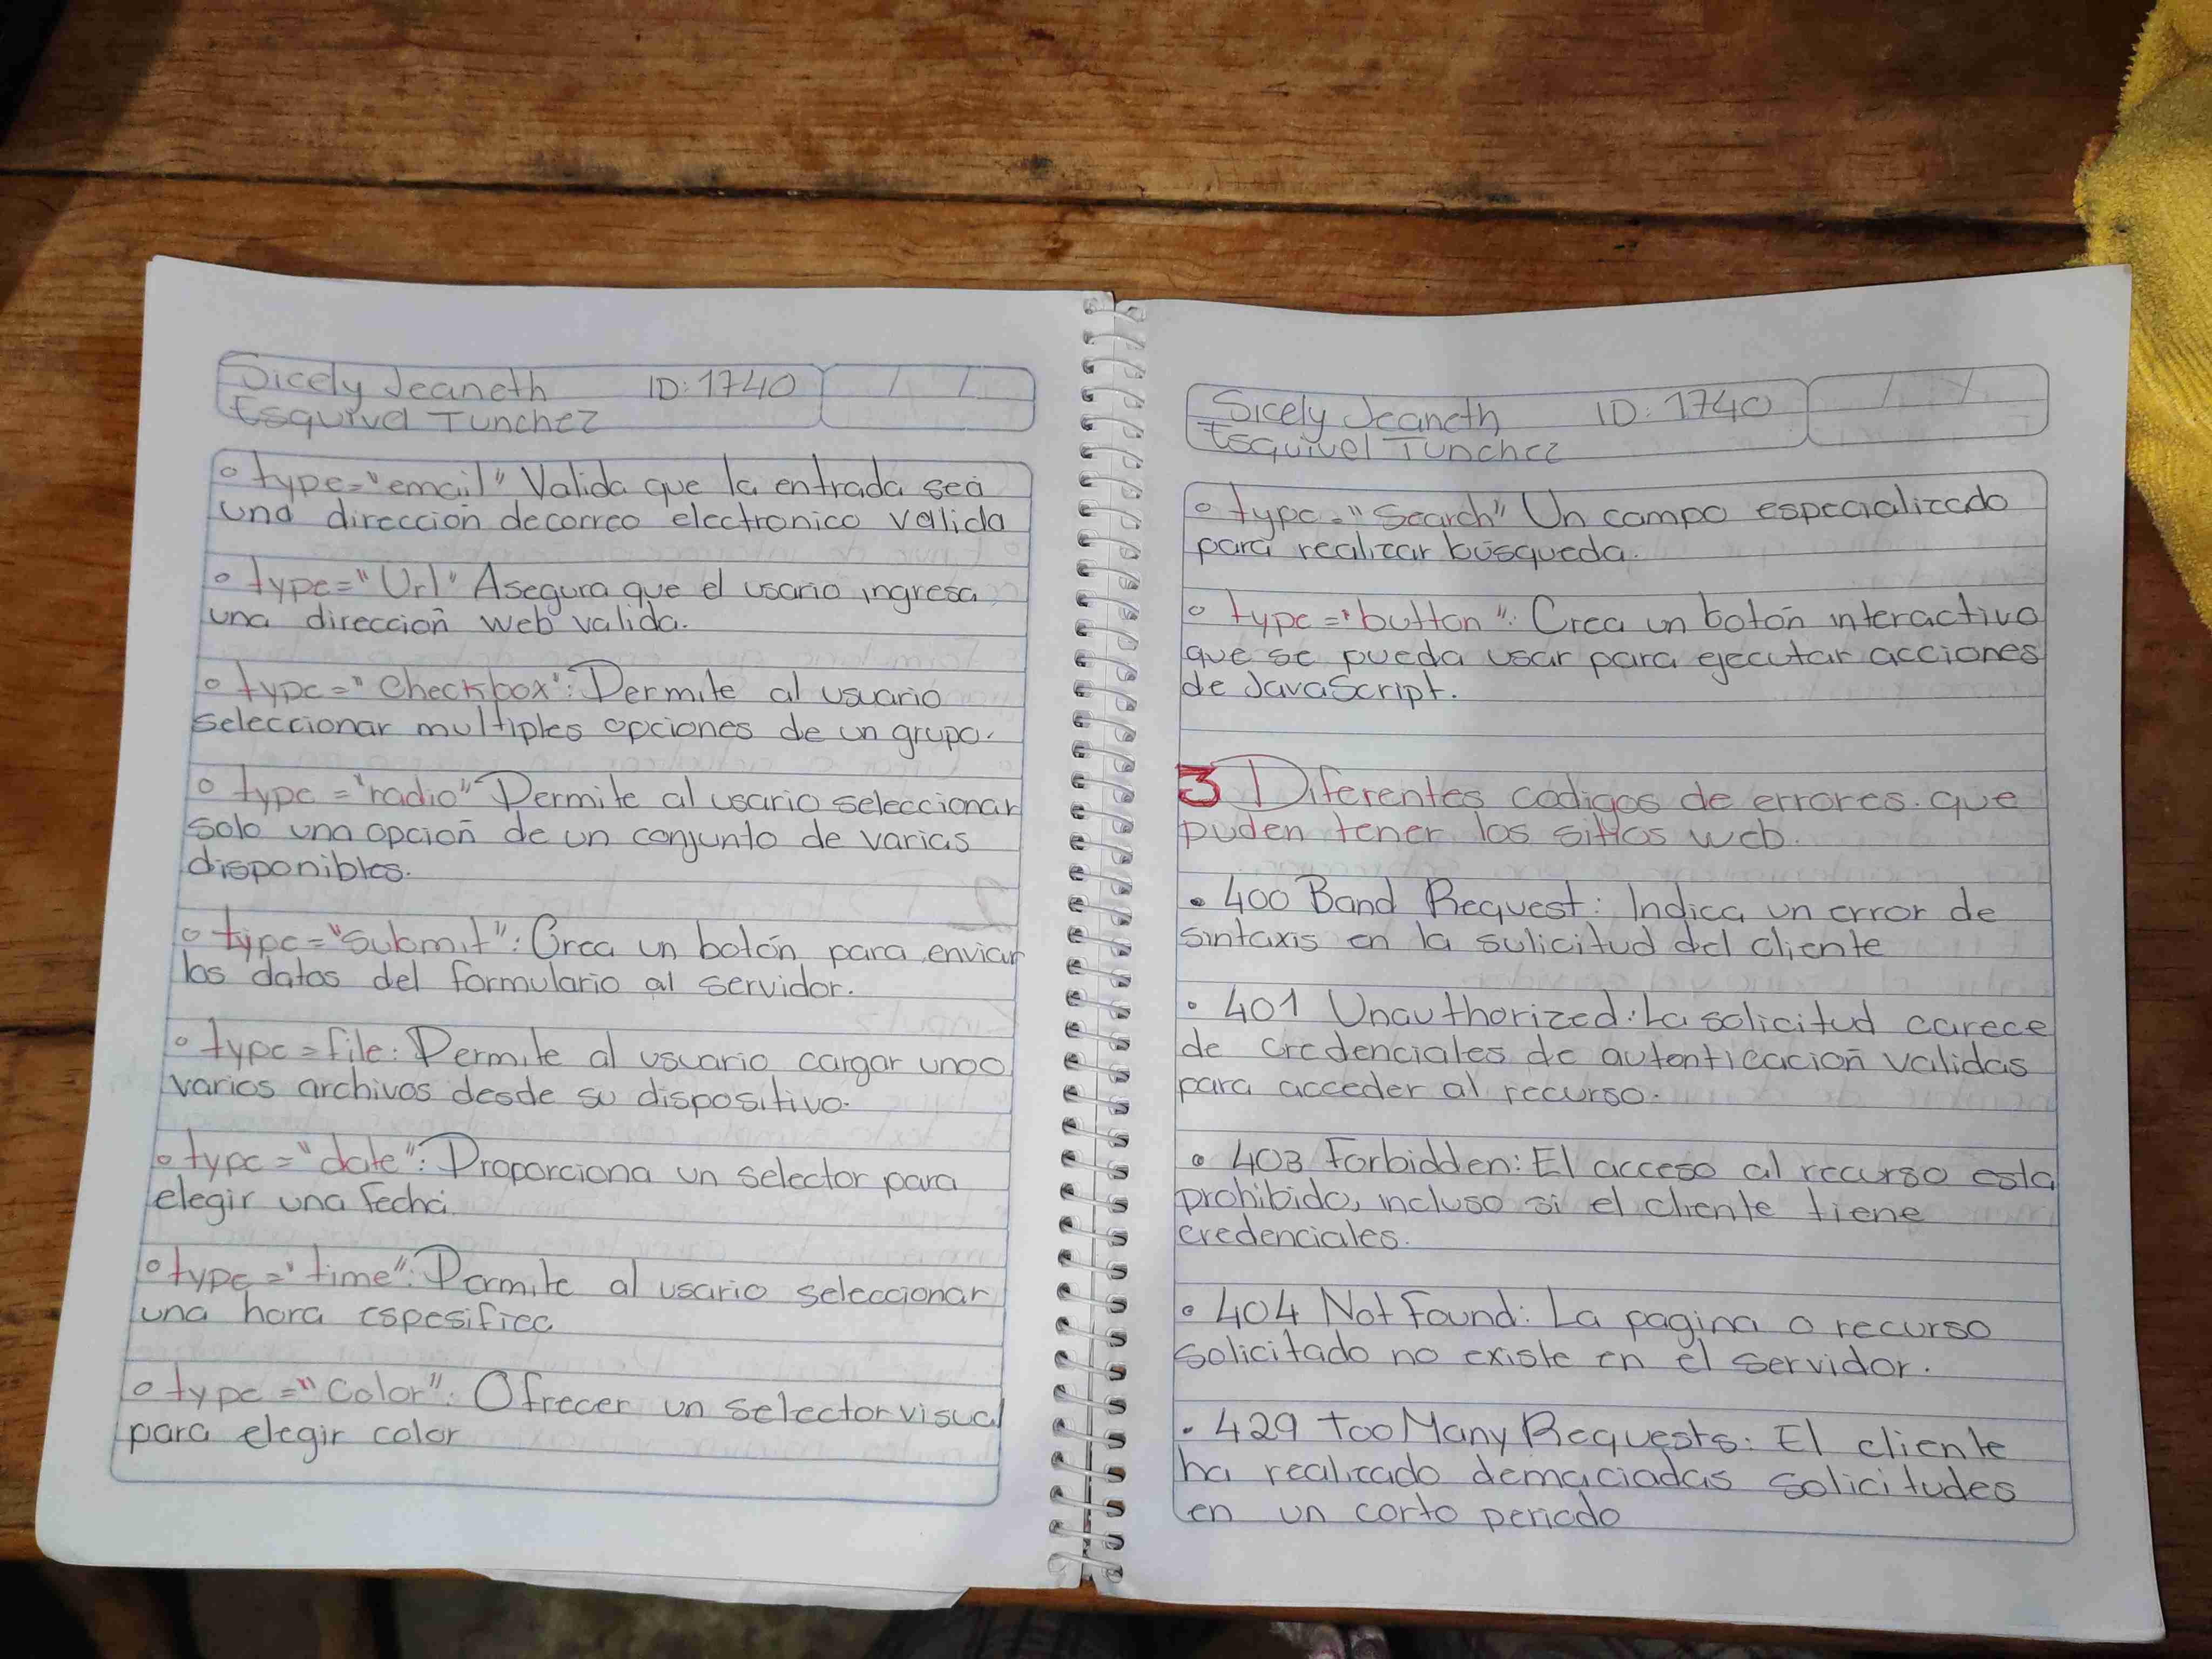 Sicely Jeaneth ID: 1740
Esquivel Tunchez
type="email" Valida que la entrada sea
una dirección de correo electronico valida
type="Url" Asegura que el usario ingresa
una dirección web valida.
type="Checkbox": Permite al usuario
seleccionar multiples opciones de un grupo.
type="radio" Permite al usario seleccionar
solo una opción de un conjunto de varias
disponibles.
type="submit": Crea un botón para enviar
los datos del formulario al servidor.
type=file: Permite al usuario cargar uno o
varios archivos desde su dispositivo.
type="date": Proporciona un selector para
elegir una fecha.
type="time": Permite al usario seleccionar
una hora espesifica
type="Color": Ofrecer un selector visual
para elegir color
Sicely Jeaneth ID: 1740
Esquivel Tunchez
type="Search" Un campo especializado
para realizar búsqueda.
type="button": Crea un botón interactivo
que se pueda usar para ejecutar acciones
de JavaScript.
3 Diferentes codigos de errores que
puden tener los sitios web.
• 400 Band Request: Indica un error de
sintaxis en la sulicitud del cliente
• 401 Unauthorized: La solicitud carece
de credenciales de autenticación validas
para acceder al recurso.
• 403 Forbidden: El acceso al recurso esta
prohibido, incluso si el cliente tiene
credenciales.
• 404 Not Found: La pagina o recurso
solicitado no existe en el servidor.
• 429 Too Many Requests: El cliente
ha realizado demaciadas solicitudes
en un corto periodo